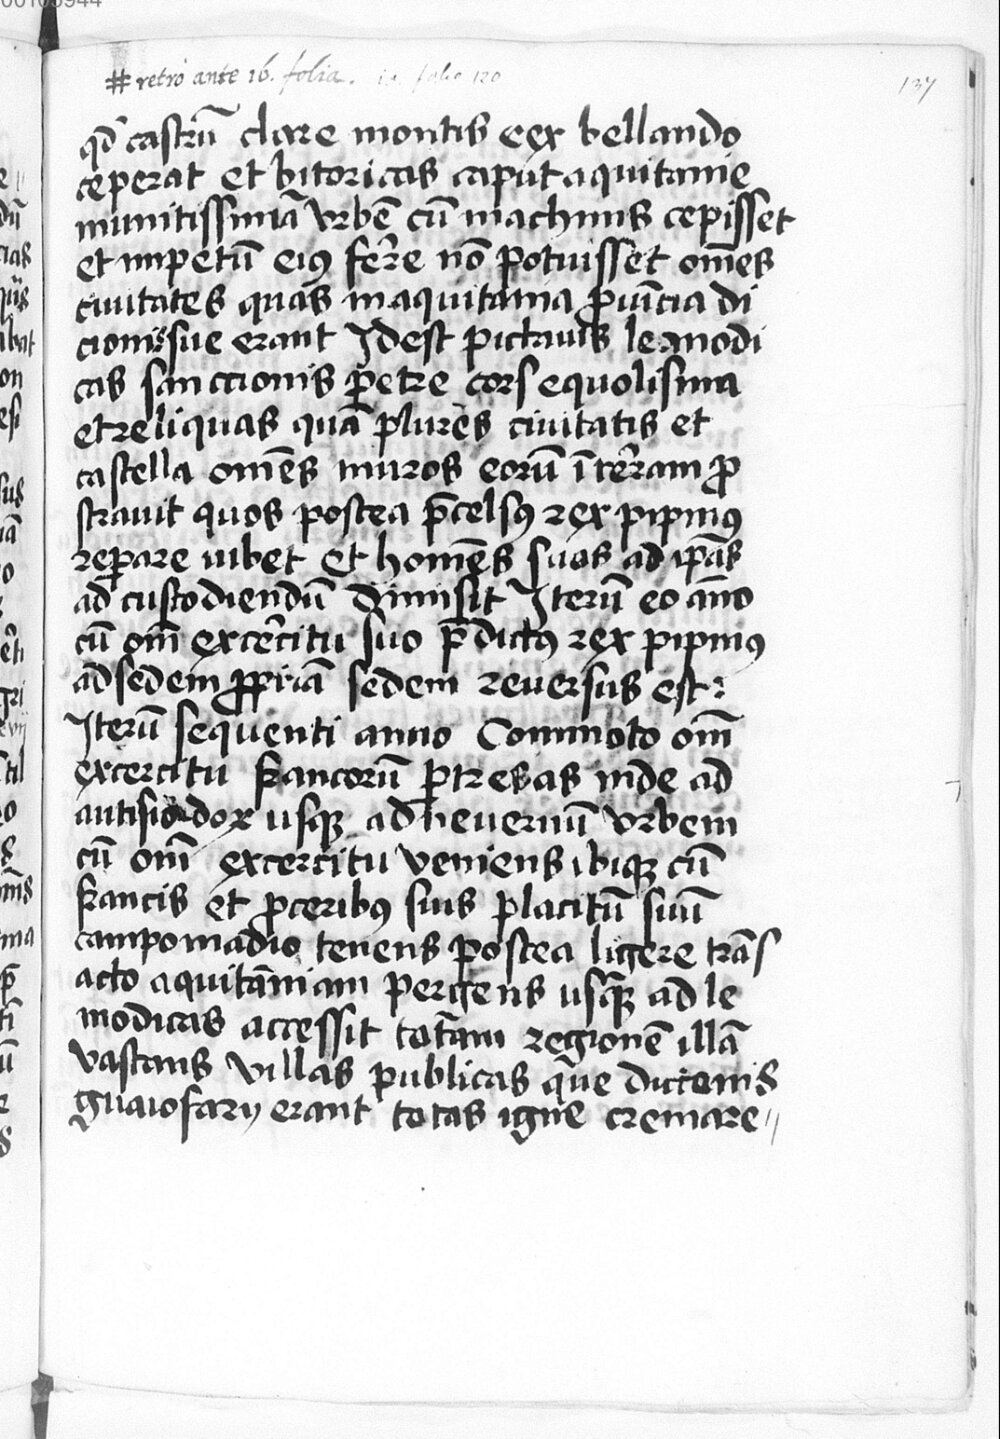 # retro ante 16. folia. in folio 120
137
qd̄ castrū clare montis eex bellando
ceperat et bitoricas caput aquitanie
munitissimā vrbē cū machinis cepisset
et impetū eiꝯ fer̄e nō potuisset om̄es
ciuitates quas in aquitania ꝓuīcia di
cionis sue erant Idest pictauis lemodi
cas sanccionis p̄etre cors equolisma
et reliquas quā plures ciuitatis et
castella om̄es muros eorū ī ter̄ram ꝓ
strauit quos postea p̄celsꝯ rex pipinꝯ
reꝑare iubet et hom̄es suos ad ip̄as
ad custodiendū dimisit Iterū eo an̄o
cū om̄i excer̄citu suo p̄dictꝯ rex pipinꝯ
ad sedem ꝓpriā sedem reuersus est:
Iterū sequenti anno Commoto om̄i
excercitu francorū ꝑ tresas inde ad
autisiodor usqꝫ ad neuernū vrbem
cū om̄i excercitu veniens ibiqꝫ cū
francis et ꝓceribꝯ suis placitū suū
campo madio tenens postea ligere trās
acto aquitāniam pergens usqꝫ ad le
modicas accessit totam regionē illā
vastans villas publicas que dictenis
guaiofarij erant totas igne cremare //